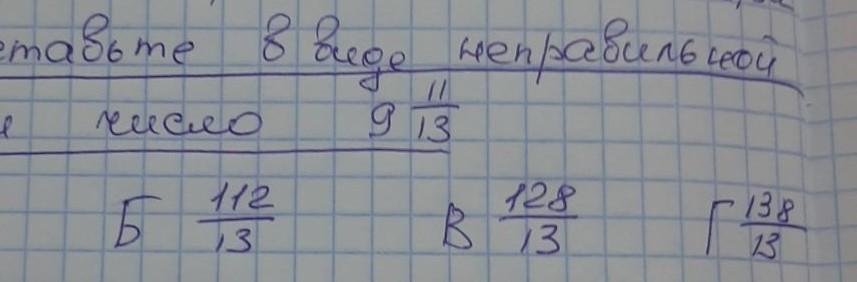 тавьте в виде неправильной
число 9 11/13
Б 112/13 В 128/13 Г 138/13